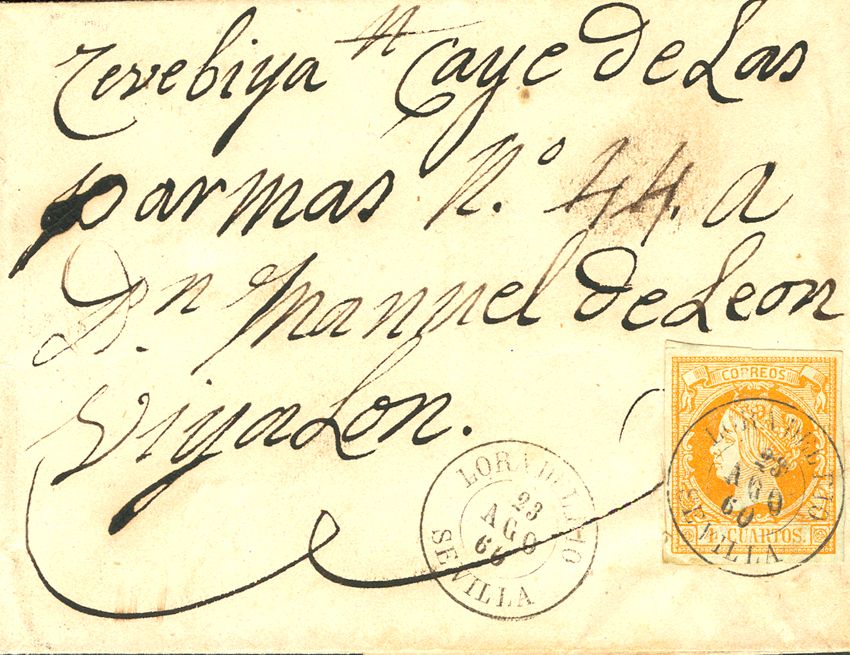 Zevebiya n Caye de Las
parmas N.º 44. a
Dn. Manuel de Leon
Viyalon.
CORREOS
4 CUARTOS.
LORA DEL RIO
23
AGO
60
SEVILLA
LORA DEL RIO
23
AGO
60
SEVILLA